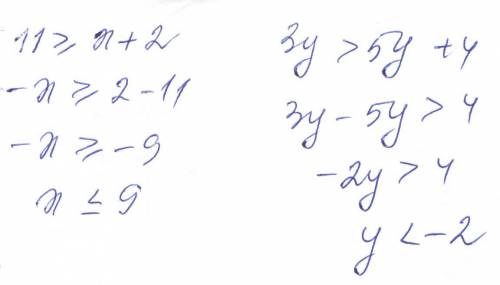 11 ≥ x + 2
-x ≥ 2 - 11
-x ≥ -9
x ≤ 9
3y > 5y + 4
3y - 5y > 4
-2y > 4
y < -2